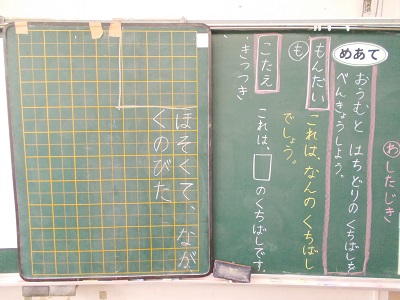 わ したじき
めあて
おうむと はちどりの くちばしを
べんきょうしよう。
もんだい
も
これは、なんの くちばし
でしょう。
こたえ
きつつき
これは、□のくちばしです。
ほそくて、 なが
くのびた